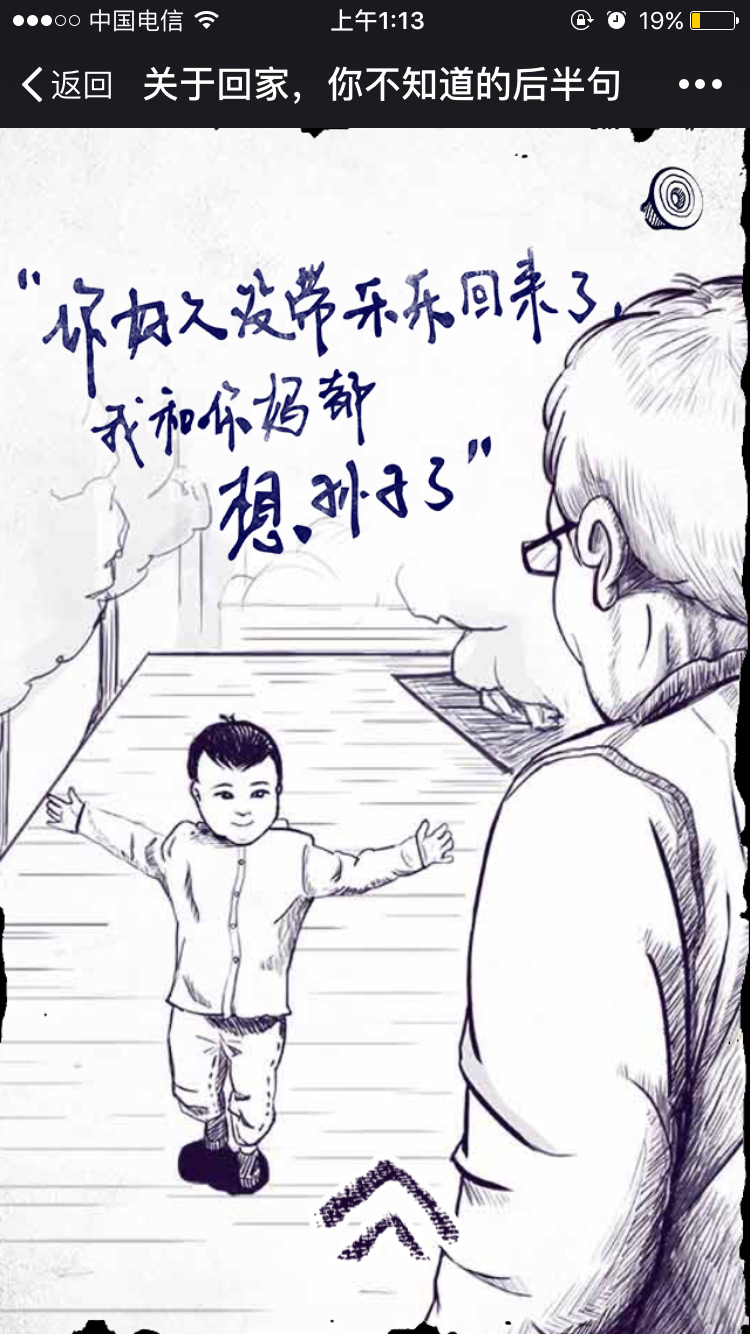 中国电信 上午1:13 19%
返回 关于回家，你不知道的后半句
“你好久没带乐乐回来了，
我和你妈都
想孙子了”